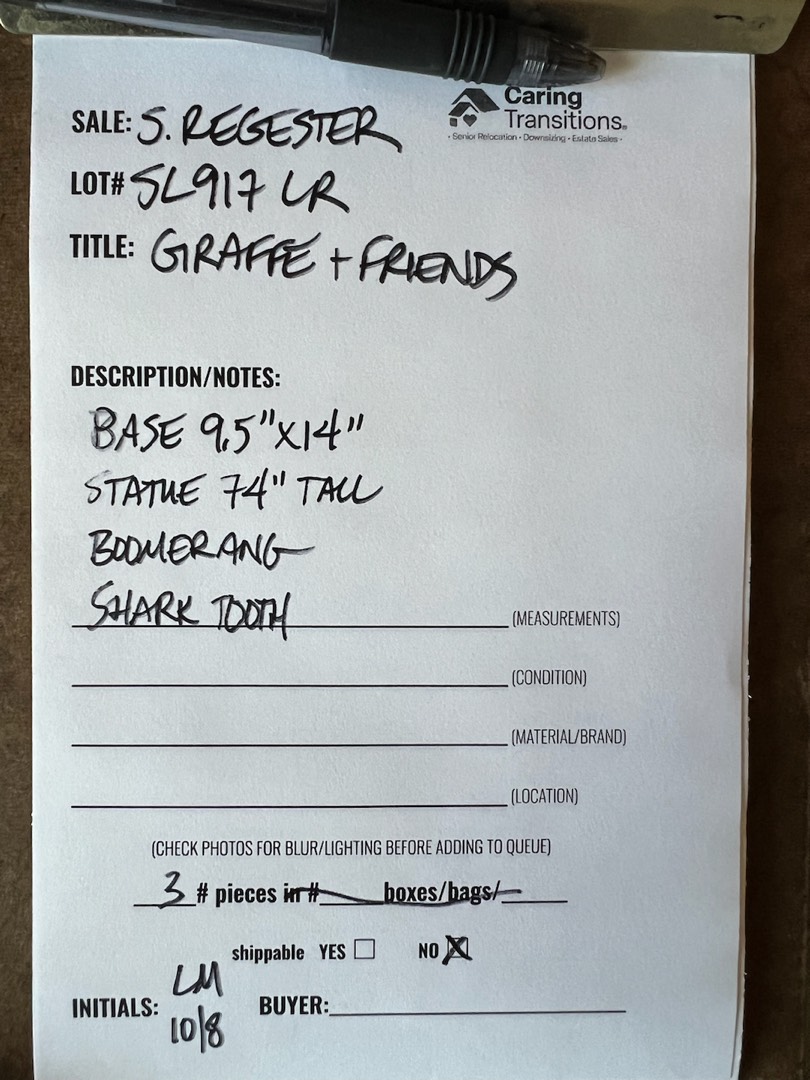 Caring
Transitions
• Senior Relocation • Downsizing • Estate Sales •
SALE: S. REGESTER
LOT# SL917 LR
TITLE: GIRAFFE + FRIENDS
DESCRIPTION/NOTES:
BASE 9.5"X14"
STATUE 74" TALL
BOOMERANG
SHARK TOOTH (MEASUREMENTS)
(CONDITION)
(MATERIAL/BRAND)
(LOCATION)
(CHECK PHOTOS FOR BLUR/LIGHTING BEFORE ADDING TO QUEUE)
3 # pieces in # boxes/bags/
shippable YES ☐ NO ☒
LM
INITIALS: 10/8 BUYER: